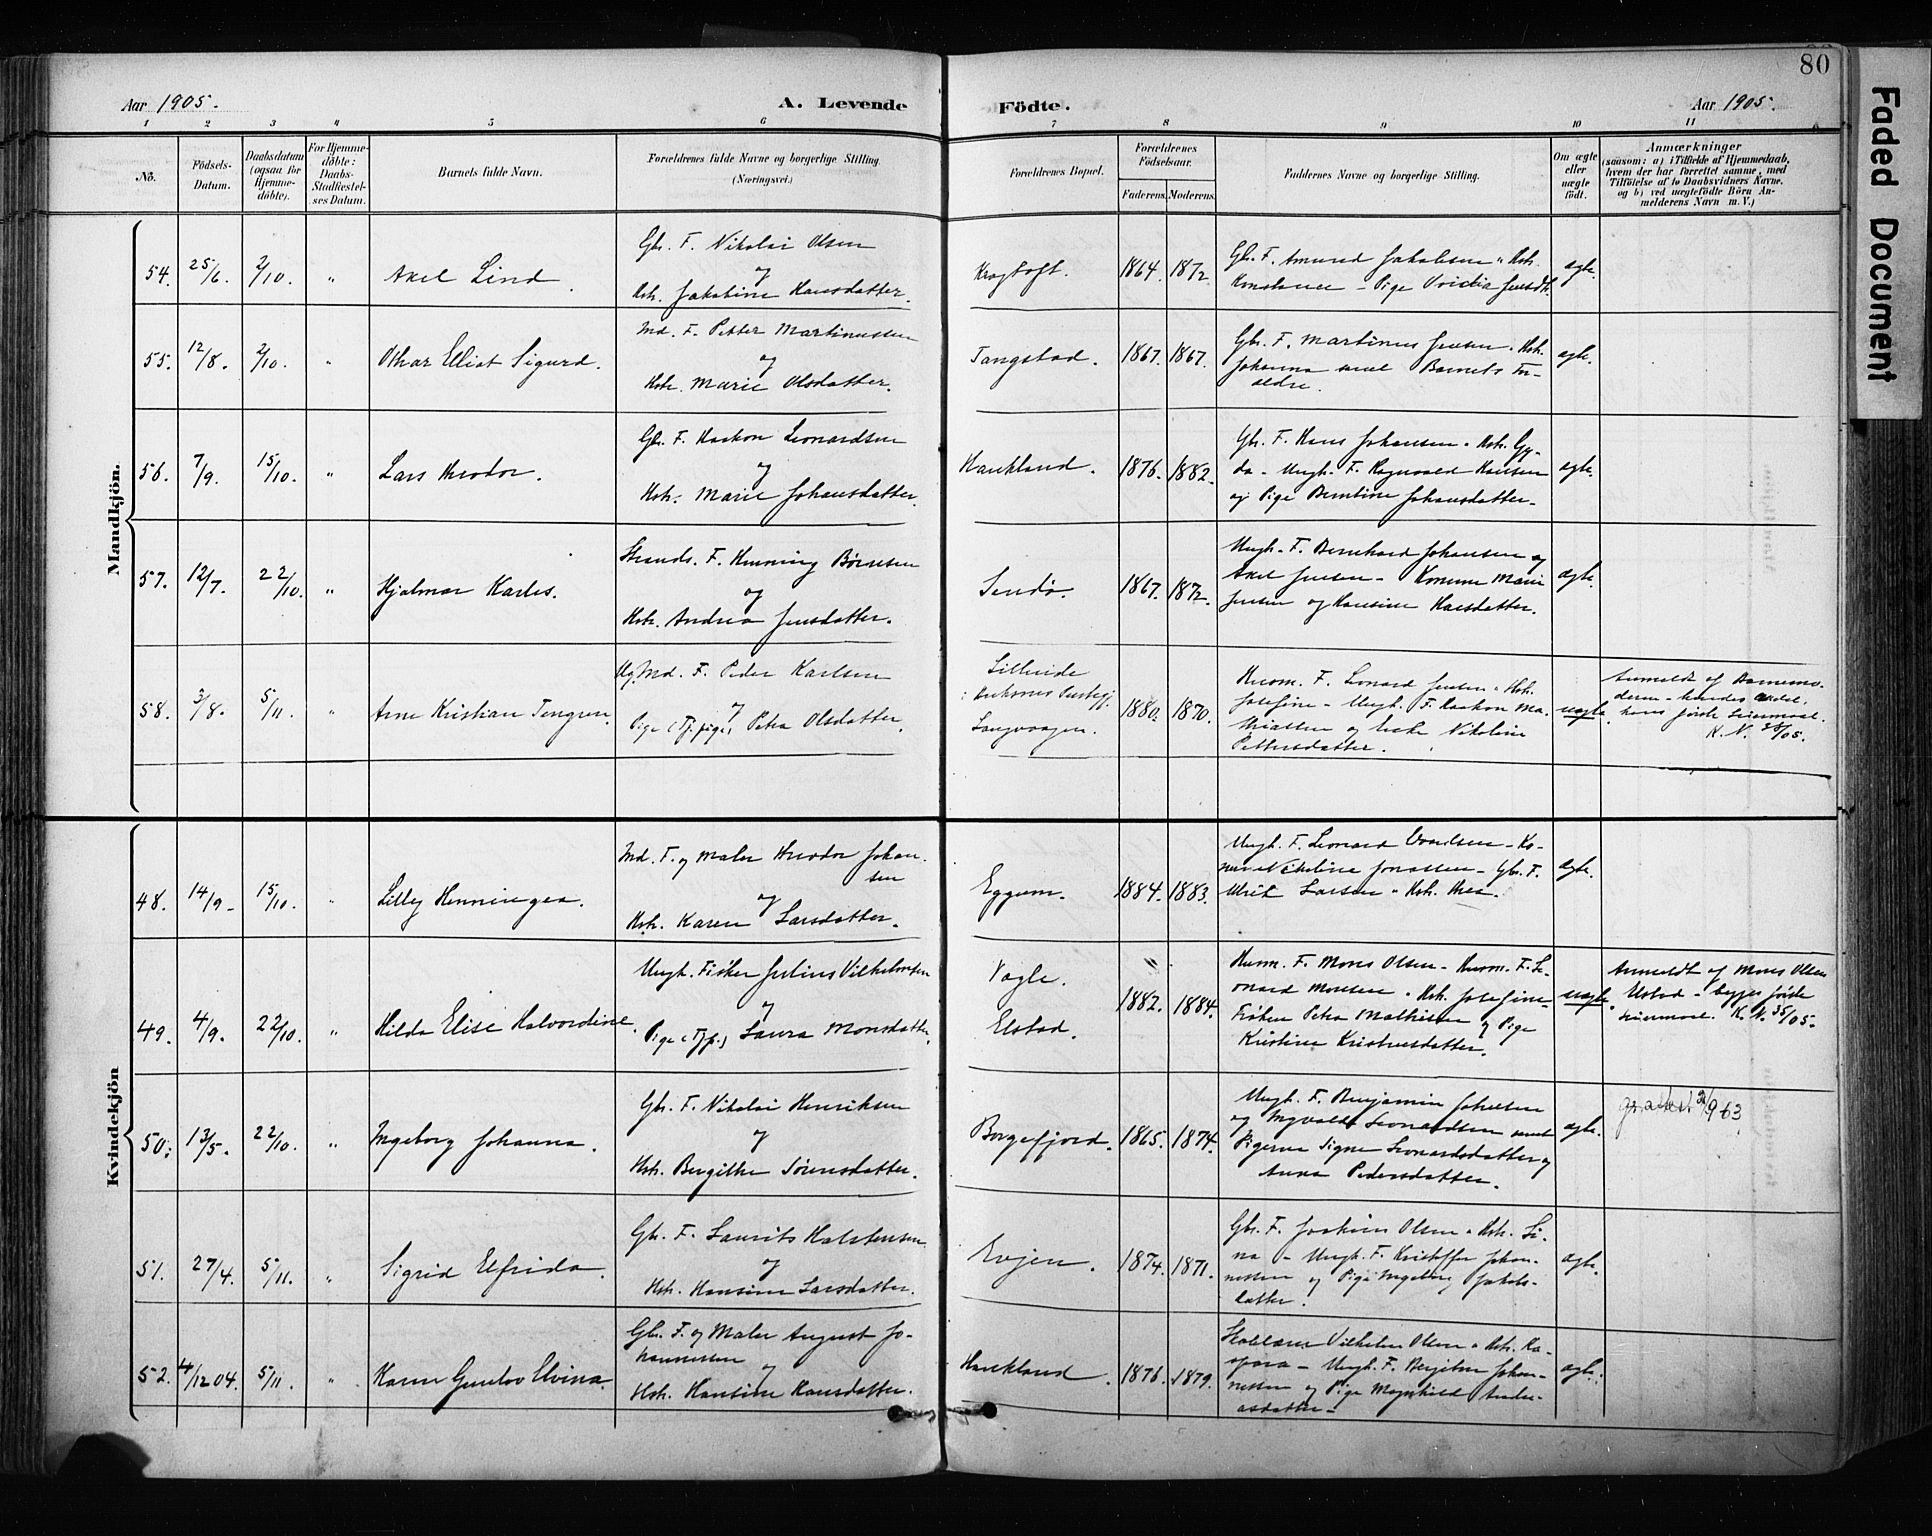 80
Faded Document
Aar 1905.
A. Levende
Födte.
Aar 1905.
1 2 3 4 5 6 7 8 9 10 11
No.
Födsels-
Datum.
Daabsdatum
(ogsaa for
Hjemme-
döbte).
For Hjemme-
döbte:
Daabs-
Stadfæstel-
ses Datum.
Barnets fulde Navn.
Forældrenes fulde Navne og borgerlige Stilling.
(Næringsvei.)
Forældrenes Bopæl.
Forældrenes
Födselsaar.
Faderens.
Moderens.
Faddernes Navne og borgerlige Stilling.
Om ægte
eller
uægte
födt.
Anmærkninger
(saasom: a) i Tilfælde af Hjemmedaab,
hvem der har forrettet samme, med
Tilföielse af to Daabsvidners Navne,
og b) ved uægtefödte Börn An-
melderens Navn m. V.)
Mandkjön.
54. 25/6. 2/10. " Axel Lind.
Gbr. F. Nikolai Olsen
og
Hstr. Jakobine Hansdatter.
1864. 1872
Gbr. F. Amund Jakobsen " Hstr.
ægte.
55. 12/8. 2/10. " Othar Elliot Sigurd.
Md. F. Petter Martinussen
og
Hstr. Marie Olsdatter.
Tangstad. 1867. 1867.
Gbr. F. Martinus Jensen " Hstr.
Johanna samt Barnets For-
ældre.
ægte.
56. 7/9. 15/10. " Lars Theodor.
Gbr. F. Haakon Leonardsen
og
Hstr. Marie Johansdatter.
Haukland. 1876. 1882.
Gbr. F. Hans Johansen " Hstr. Gy-
da - Ungk. F. Ragnvald Hansen
og Pige Berntine Johansdatter.
ægte.
57. 12/7. 22/10. " Hjalmar Karles.
Strands. F. Henning Børnsen
og
Hstr. Andrea Jensdatter.
Sendø. 1867. 1872.
Ungk. F. Bernhard Johansen og
Axel Jensen - Konerne Marie
Jensen og Hansine Hansdatter.
ægte.
58. 3/8. 5/11. " Arne Kristian Tengren.
Ug. Md. F. Peder Karlsen
og
Pige (Tj.pige) Petra Olsdatter.
Langvaagen. 1880. 1870.
Husm. F. Leonard Jensen " Hstr.
Josefine - Ungk. F. Haakon Ma-
thiassen og Enke Nikoline
Pettersdatter.
uægte.
Anmeldt af Barnemo-
deren - hendes andet,
hans første Leiermaal.
K. N. 38/05.
Kvindekjön
48. 14/9. 15/10. " Lilly Henningea.
Md. F. og Maler Theodor Johan-
sen
og
Hstr. Karen Larsdatter.
Eggum. 1884. 1883.
Ungk. F. Leonard Arntsen - Ko-
nerne Nikoline Jonassen - Gbr. F.
Ulrik Larsen " Hstr. Thea.
ægte.
49. 4/9. 22/10. " Hilda Elise Halvordine.
Ungk. Fisker Julius Vilhelmsen
og
Pige (Tjp.) Laura Monsdatter.
Vagle.
Elstad. 1882. 1884.
Husm. F. Mons Olsen - Husm. F. Le-
onard Monsen " Hstr. Josefine -
Frøken Petra Mathisen og Pige
Kristine Kristensdatter.
uægte.
Anmeldt af Mons Olsen
Ulstad - begges første
Leiermaal. K. N. 35/05.
50. 13/5. 22/10. " Ingeborg Johanna.
Gbr. F. Nikolai Henriksen
og
Hstr. Bergithe Sørensdatter.
Borgefjord. 1865. 1874.
Ungk. F. Benjamin Johnsen
og Ingvald Leonardsen samt
Pigerne Signe Leonardsdatter og
Anna Pedersdatter.
ægte.
51. 27/4. 5/11. " Sigrid Elfrida.
Gbr. F. Laurits Halstensen
og
Hstr. Hansine Larsdatter.
Evjen. 1874. 1871.
Gbr. F. Joakim Olsen " Hstr. Li-
na - Ungk. F. Kristoffer Johan-
nessen og Pige Ingeborg Jakobs-
datter.
ægte.
52. 4/12 04. 5/11. " Karen Gunelov Elvina.
Gbr. F. og Maler August Jo-
hannessen
og
Hstr. Hansine Hansdatter.
Haukland. 1876. 1879.
Vilhelm Olsen " Hstr. Ka-
spara - Ungk. F. Johan-
nessen og Pige Magnhild Andre-
asdatter -
ægte.